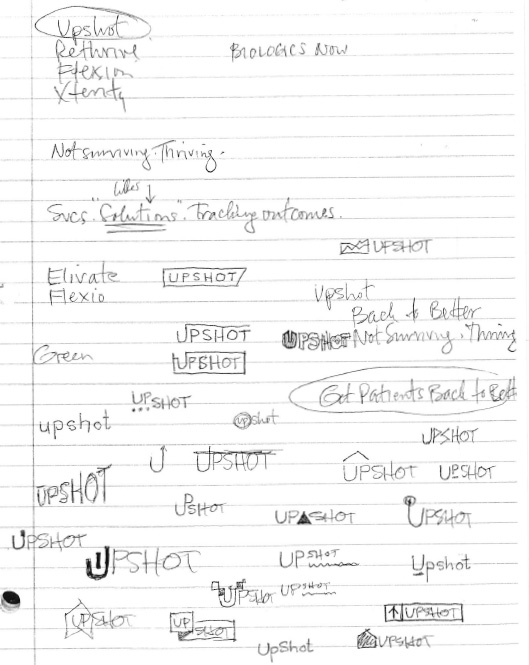 Upshot
Rethrive
BIOLOGICS NOW
Flexion
Xtenity
Not surviving. Thriving.
likes
Svcs. "Solutions". Tracking outcomes.
UPSHOT
Elivate
UPSHOT
Flexio
Upshot
Back to Better
UPSHOT
UPSHOT
Not Surviving. Thriving
Green
UPSHOT
Get Patients Back to Bett
UPSHOT
upshot
upshot
UPSHOT
U
UPSHOT
UPSHOT
UPSHOT
UPSHOT
UPSHOT
UPSHOT
UPSHOT
UPSHOT
UPSHOT
UPSHOT
UPSHOT
Upshot
UPSHOT
UPSHOT
UPSHOT
UPSHOT
UPSHOT
UPSHOT
UpShot